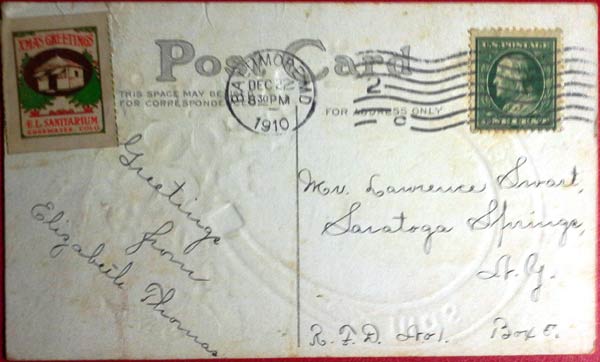 XMAS GREETINGS
E.L. SANITARIUM
EDGEWATER, COLO.
Post Card
THIS SPACE MAY BE
FOR CORRESPONDE
FOR ADDRESS ONLY
BALTIMORE, MD
DEC 22
8 30 PM
1910
2
C
U.S. POSTAGE
Greetings
from
Elizabeth Thomas
Mr. Lawrence Swart,
Saratoga Springs,
N.Y.
R.F.D. No 1. Box 5.